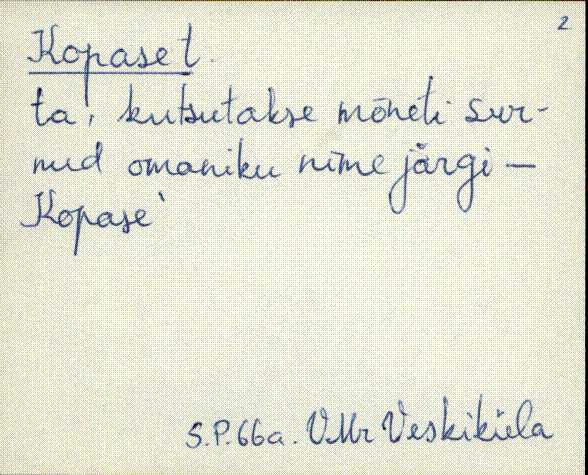 2
Kopase t.
ta, kutsutakse mõneti sur-
nud omaniku nime järgi —
Kopase'
S.P. 66a. VMr Veskiküla